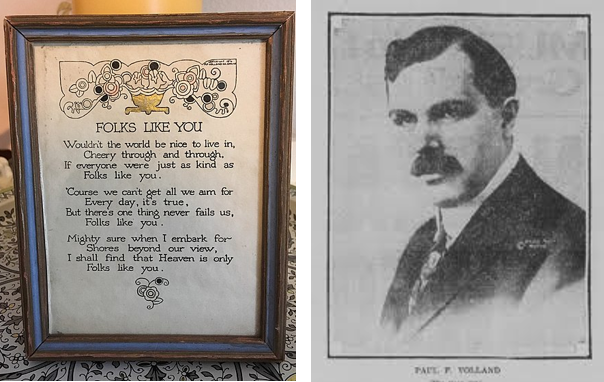 FOLKS LIKE YOU
Wouldn't the world be nice to live in,
Cheery through and through,
If everyone were just as kind as
Folks like you.
'Course we can't get all we aim for
Every day, it's true,
But there's one thing never fails us,
Folks like you.
Mighty sure when I embark for
Shores beyond our view,
I shall find that Heaven is only
Folks like you.
PAUL F. VOLLAND